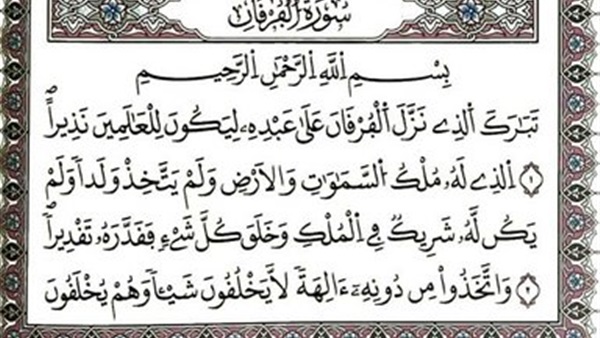 سُورَةُ الْفُرْقَانِ
بِسْمِ اِ۬للَّهِ اِ۬لرَّحْمَٰنِ اِ۬لرَّحِيمِ
تَبَٰرَكَ اَ۬لذِے نَزَّلَ اَ۬لْفُرْقَانَ عَلَىٰ عَبْدِهِۦ لِيَكُونَ لِلْعَٰلَمِينَ نَذِيراًۖ
١ اِ۬لذِے لَهُۥ مُلْكُ اُ۬لسَّمَٰوَٰتِ وَالَارْضِ وَلَمْ يَتَّخِذْ وَلَداٗ وَلَمْ
يَكُن لَّهُۥ شَرِيكٞ فِے اِ۬لْمُلْكِ وَخَلَقَ كُلَّ شَےْءٖ فَقَدَّرَهُۥ تَقْدِيراٗۖ
٢ وَاتَّخَذُواْ مِن دُونِهِۦٓ ءَالِهَةٗ لَّا يَخْلُقُونَ شَيْـٔاٗ وَهُمْ يُخْلَقُونَ